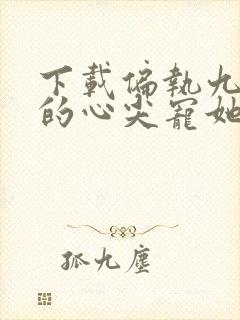 下載偏執九
的心尖寵她
孤九塵